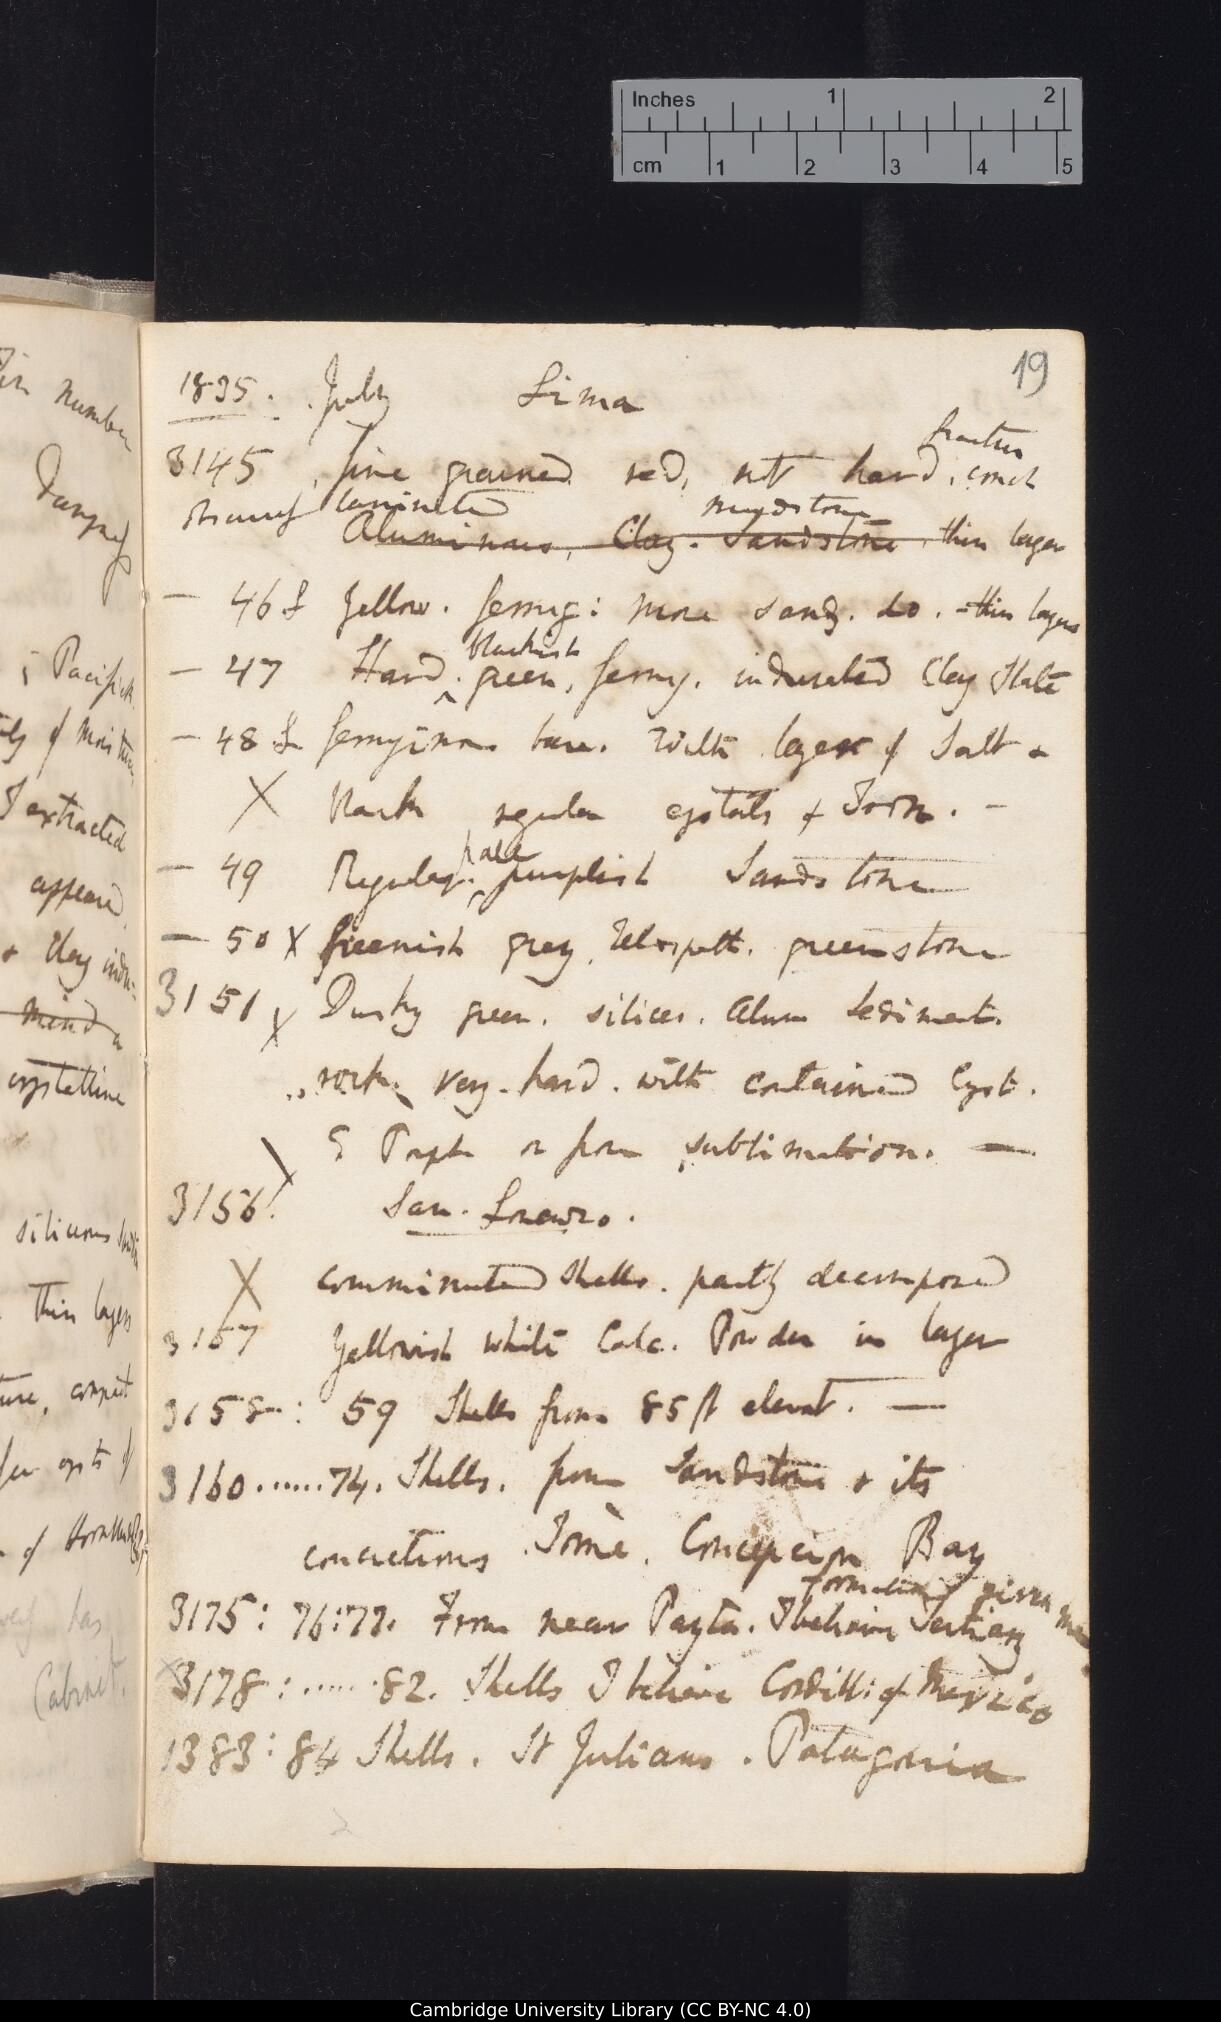 Inches 1 2
cm 1 2 3 4 5
19
1835. July Lima
fracture
3145 fine grained red, not hard, conch
laminated mudstone
Aluminous, Clay. Sandstone thin layer
— 46 Yellow. ferrug: more sandy. do. thin layers
blackish
— 47 Hard. green, ferrug. indurated Clay Slate
— 48 ferruginous base. With layer of Salt &
X black regular cystals of Iron. —
pale
— 49 Regular. purplish Sandstone
— 50 X Greenish grey, felspath. greenstone
3151 X Dusky green. silices. Alum Sediment.
rock. very hard. with contained Cyst.
Porph or from sublimation. —
3156! San. Lorenzo.
X comminuted shells. partly decomposed
3157 Yellowish white Calc. Powder in layer
3158: 59 Shells from 85 ft elevat. —
3160......74. Shells. from Sandstone & its
concretions Tomè. Concepcion Bay
formation given me
3175: 76:77. From near Payta. I believe Tertiary
3178:..... 82. Shells I believe Cordill: of Mexico
1383: 84 Shells. St Julians. Patagonia
number
; Pacifick
of moisture
I extracted
appeared
& Clay indu-
mind a
crystalline
siliceous
thin layers
compact
of
has
Cabinet.
Cambridge University Library (CC BY-NC 4.0)